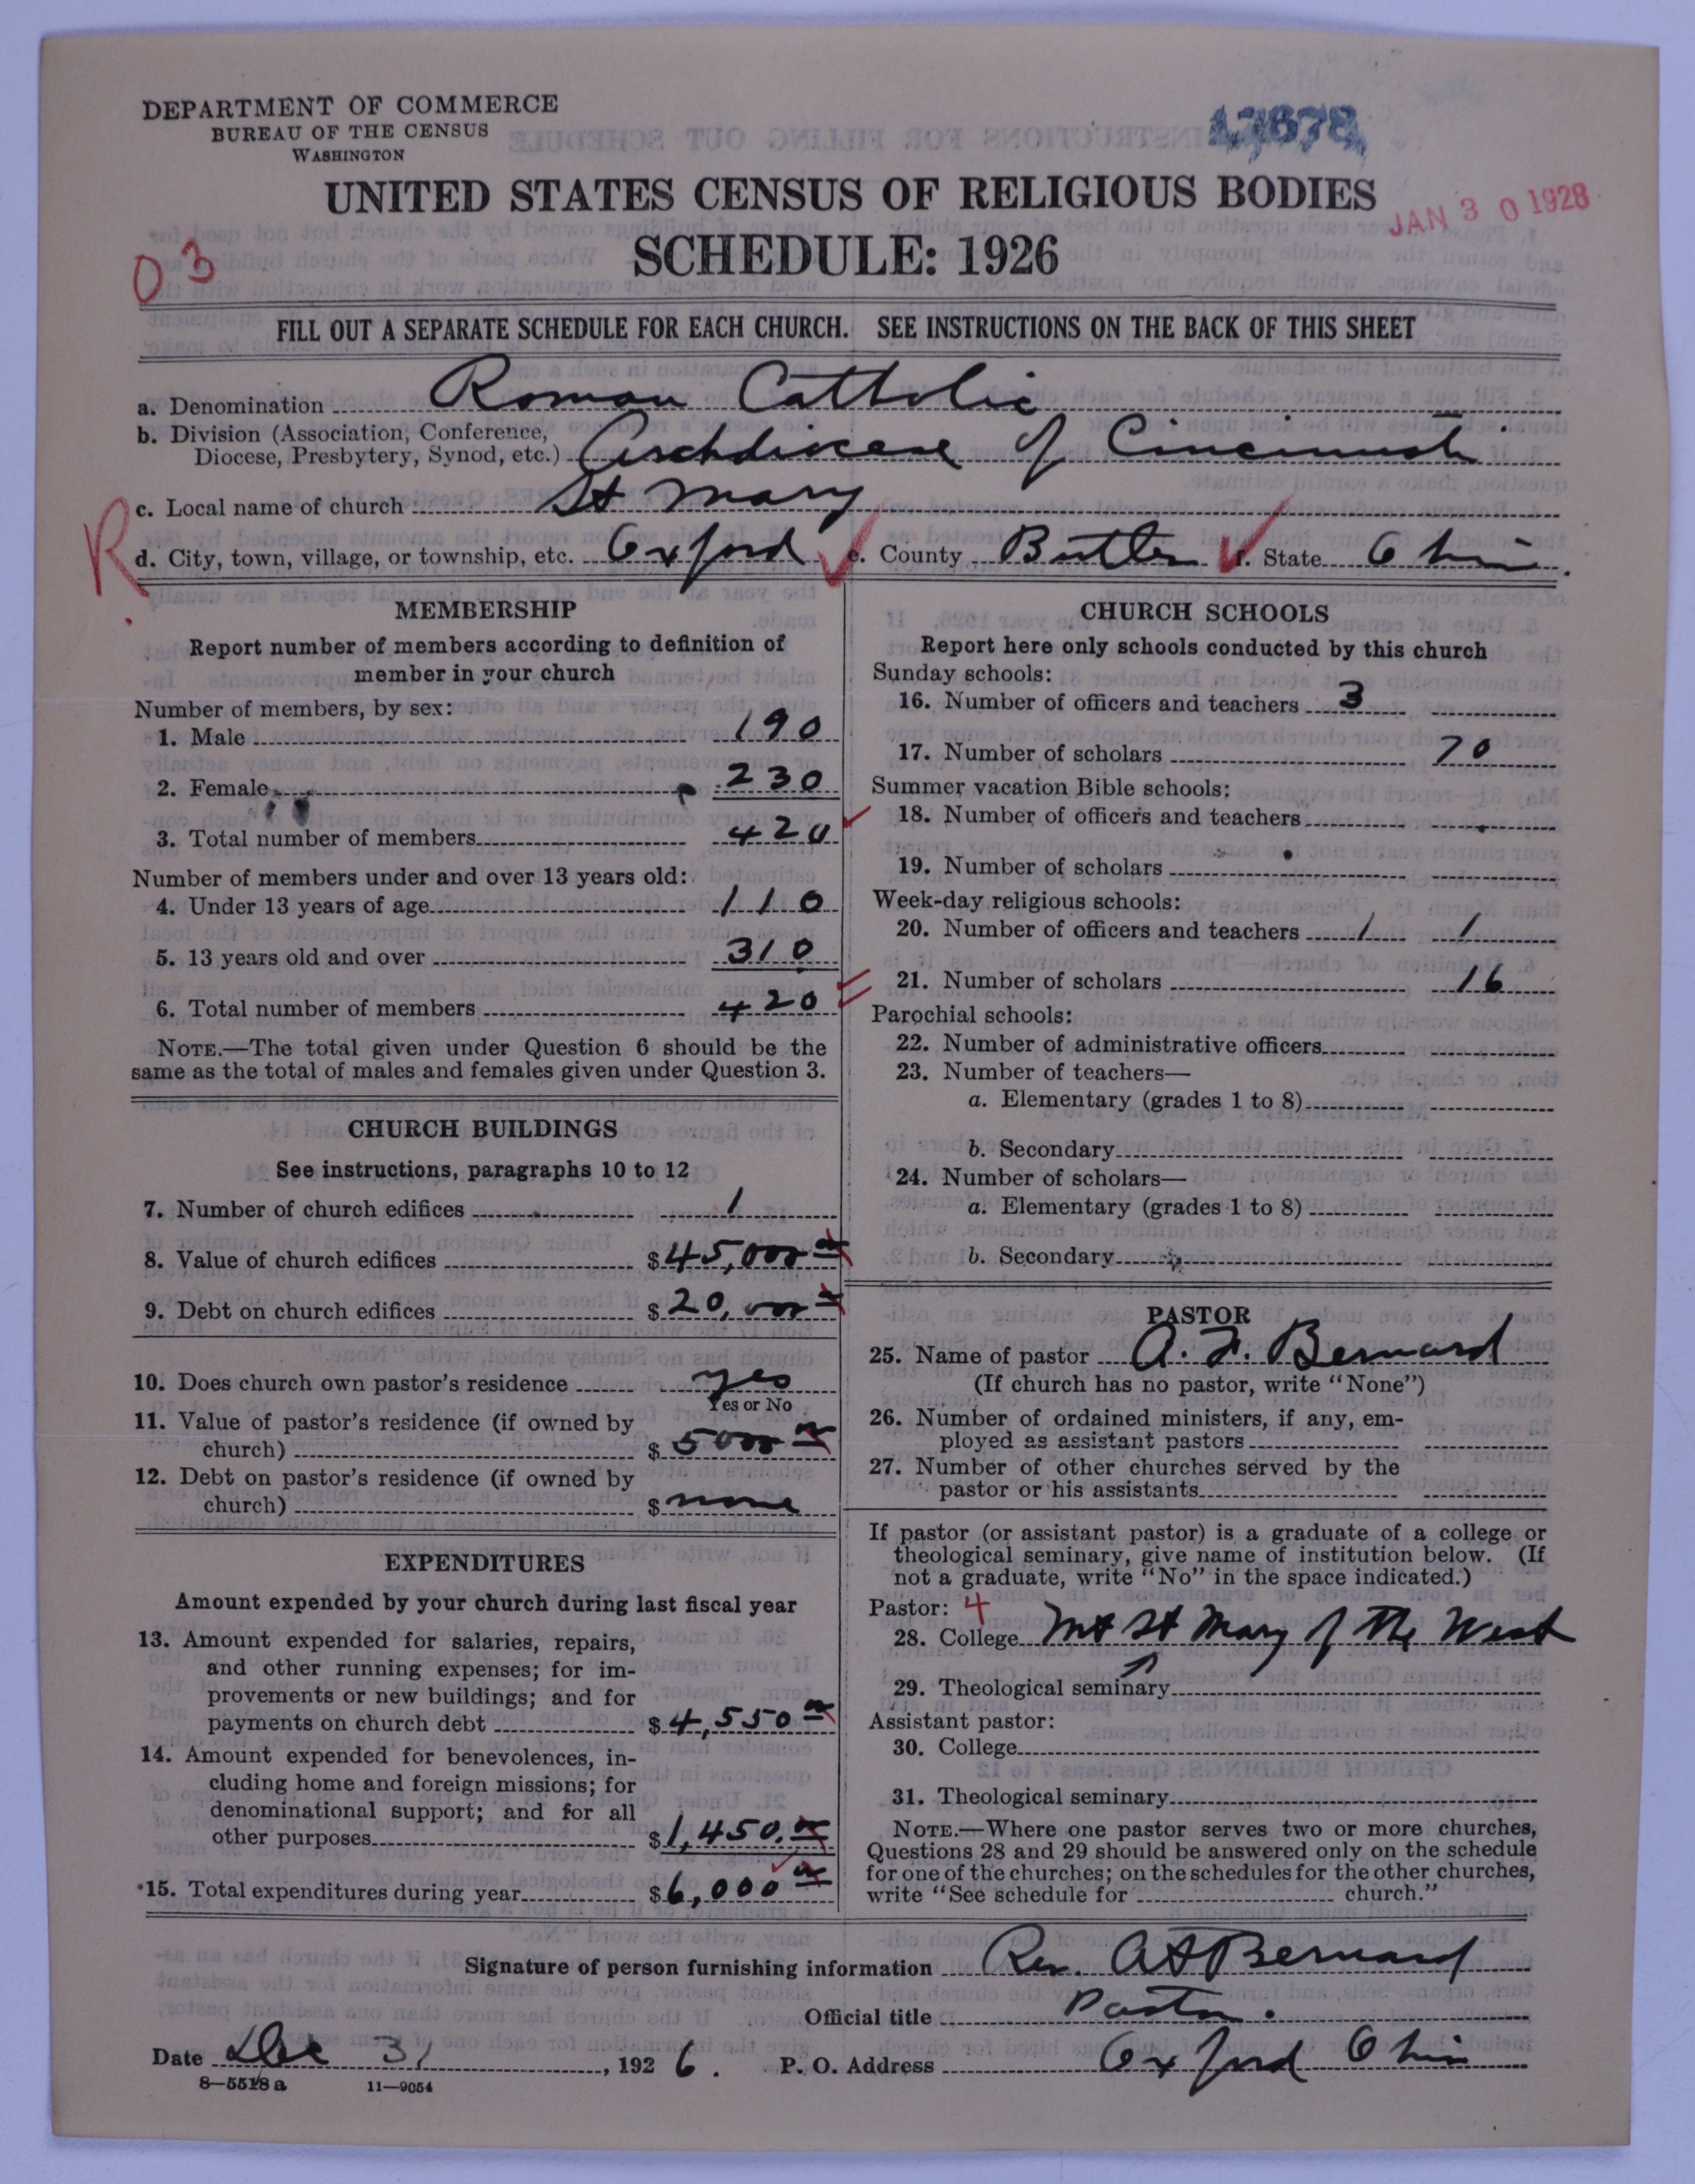 DEPARTMENT OF COMMERCE
BUREAU OF THE CENSUS
WASHINGTON
17678
UNITED STATES CENSUS OF RELIGIOUS BODIES
JAN 30 1928
SCHEDULE: 1926
03
FILL OUT A SEPARATE SCHEDULE FOR EACH CHURCH. SEE INSTRUCTIONS ON THE BACK OF THIS SHEET
a. Denomination Roman Catholic
b. Division (Association, Conference,
Diocese, Presbytery, Synod, etc.) Archdiocese of Cincinnati
c. Local name of church St Mary
R
d. City, town, village, or township, etc. Oxford e. County Butler f. State Ohio.
MEMBERSHIP
Report number of members according to definition of
member in your church
Number of members, by sex:
1. Male 190
2. Female 230
3. Total number of members 420
Number of members under and over 13 years old:
4. Under 13 years of age 110
5. 13 years old and over 310
6. Total number of members 420
NOTE.—The total given under Question 6 should be the
same as the total of males and females given under Question 3.
CHURCH BUILDINGS
See instructions, paragraphs 10 to 12
7. Number of church edifices 1
8. Value of church edifices $45,000 00
9. Debt on church edifices $20,000 00
10. Does church own pastor's residence yes
Yes or No
11. Value of pastor's residence (if owned by
church) $5000 00
12. Debt on pastor's residence (if owned by
church) $none
EXPENDITURES
Amount expended by your church during last fiscal year
13. Amount expended for salaries, repairs,
and other running expenses; for im-
provements or new buildings; and for
payments on church debt $4,550 00
14. Amount expended for benevolences, in-
cluding home and foreign missions; for
denominational support; and for all
other purposes $1,450.00
15. Total expenditures during year $6,000 00
CHURCH SCHOOLS
Report here only schools conducted by this church
Sunday schools:
16. Number of officers and teachers 3
17. Number of scholars 70
Summer vacation Bible schools:
18. Number of officers and teachers
19. Number of scholars
Week-day religious schools:
20. Number of officers and teachers 1 1
21. Number of scholars 16
Parochial schools:
22. Number of administrative officers
23. Number of teachers—
a. Elementary (grades 1 to 8)
b. Secondary
24. Number of scholars—
a. Elementary (grades 1 to 8)
b. Secondary
PASTOR
25. Name of pastor A. F. Bernard
(If church has no pastor, write "None")
26. Number of ordained ministers, if any, em-
ployed as assistant pastors
27. Number of other churches served by the
pastor or his assistants
If pastor (or assistant pastor) is a graduate of a college or
theological seminary, give name of institution below. (If
not a graduate, write "No" in the space indicated.)
Pastor: 4
28. College Mt St Mary of the West
29. Theological seminary
Assistant pastor:
30. College
31. Theological seminary
NOTE.—Where one pastor serves two or more churches,
Questions 28 and 29 should be answered only on the schedule
for one of the churches; on the schedules for the other churches,
write "See schedule for church."
Signature of person furnishing information Rev. A F Bernard
Official title Pastor.
Date Dec 31, 1926. P. O. Address Oxford Ohio
8—5518 a 11—9054